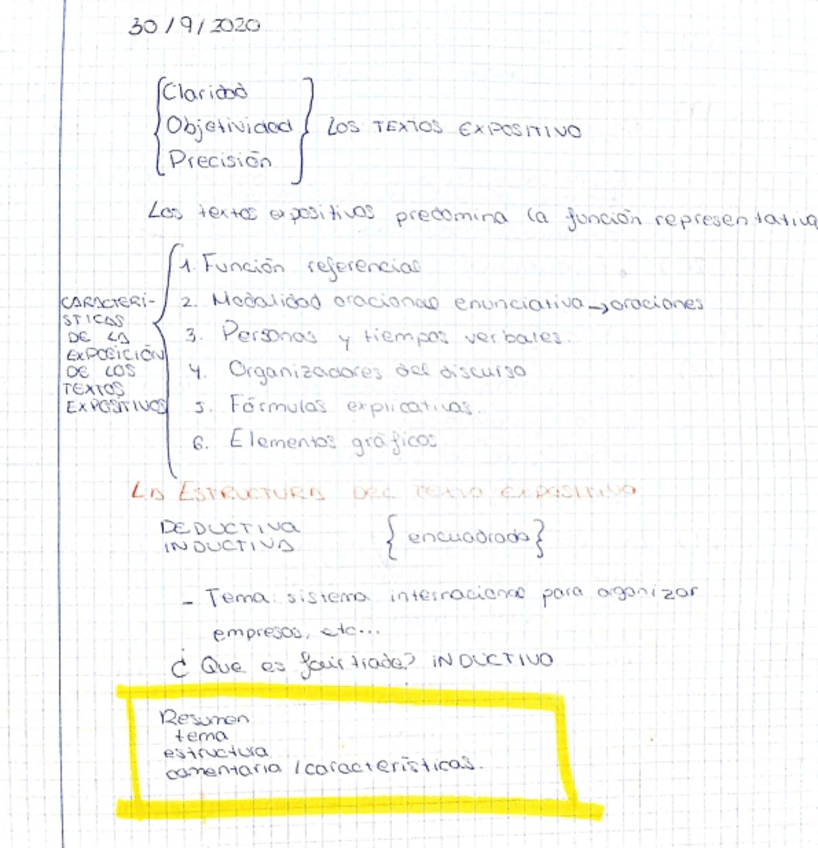 30/9/2020
Claridad
Objetividad
Precisión
LOS TEXTOS EXPOSITIVO
Los textos expositivos predomina la función representativa
CARACTERÍ-
STICAS
DE LA
EXPOSICIÓN
DE LOS
TEXTOS
EXPOSITIVOS
1. Función referencial
2. Modalidad oracional enunciativa → oraciones
3. Personas y tiempos verbales.
4. Organizadores del discurso
5. Fórmulas explicativas.
6. Elementos gráficos
LA ESTRUCTURA DEL TEXTO EXPOSITIVO
DEDUCTIVA
INDUCTIVA
{encuadrada}
- Tema: sistema internacional para organizar
empresas, etc...
¿Que es fair trade? INDUCTIVO
Resumen
tema
estructura
comentario / características.